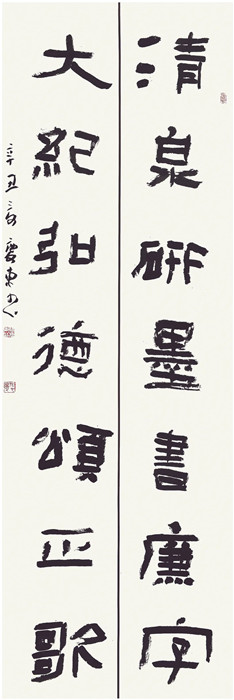 清泉研墨書廉字
大紀弘德頌正歌
辛丑